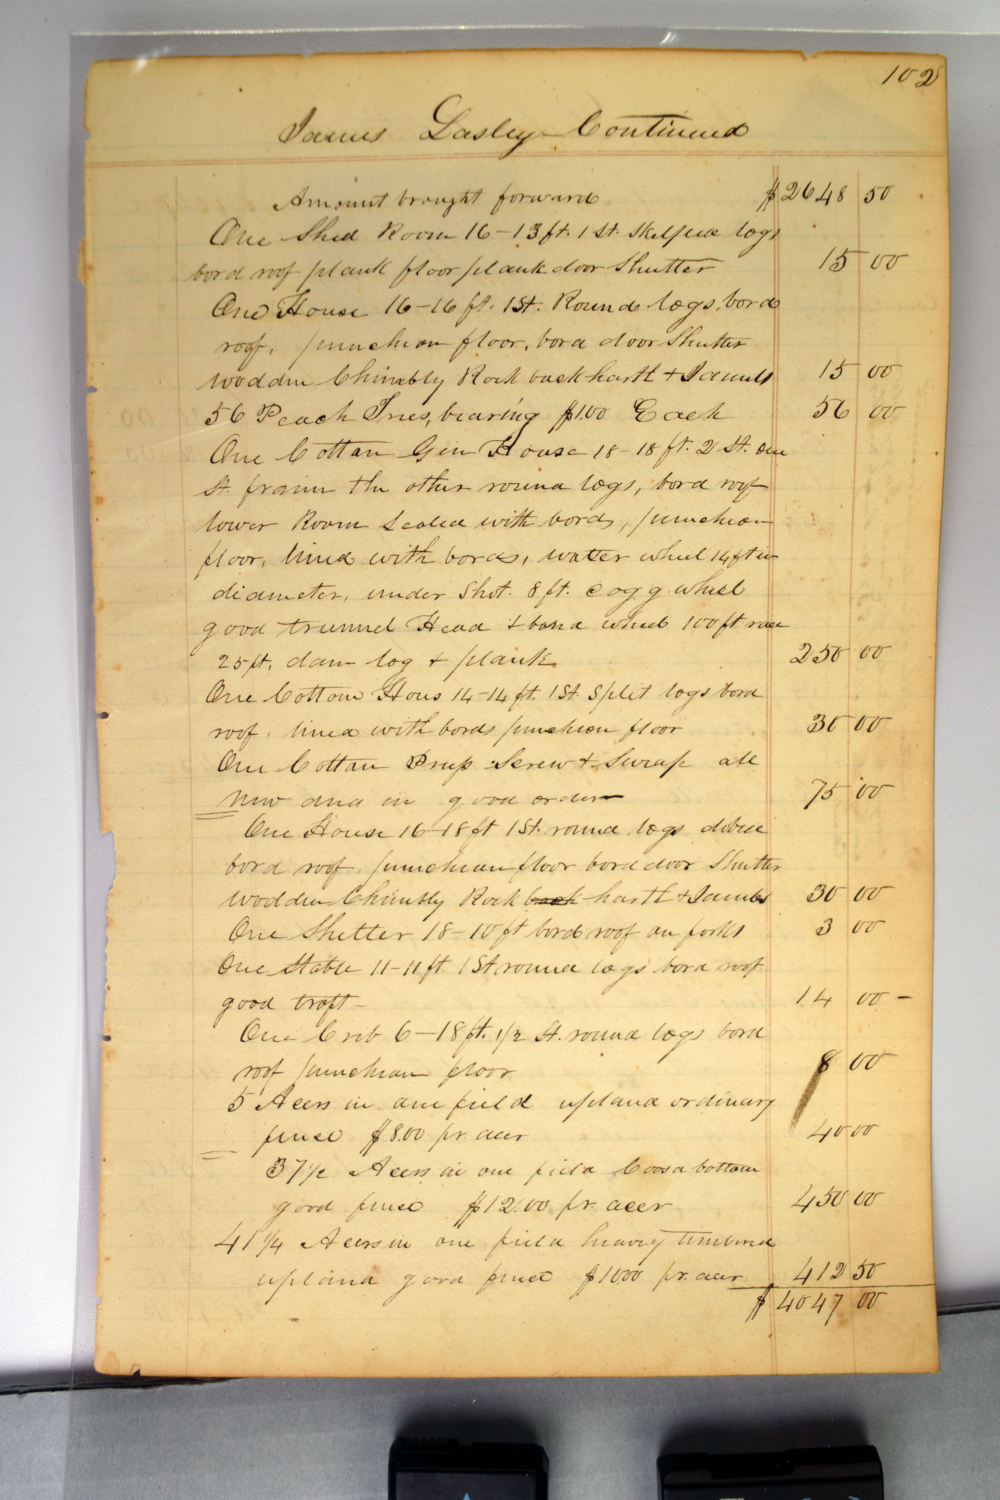 102
James Lasley Continued
Amount brought forward $2648 50
One Shed Room 16-13 ft. 1 St. Skelped logs
bord roof plank floor plank door Shutter 15 00
One House 16-16 ft. 1 St. Round logs, bord
roof, puncheon floor, bord door Shutter
wodden Chimbly Rock back harth & Jambs 15 00
56 Peach Trees, bearing $1.00 Each 56 00
One Cottan Gin House 18-18 ft. 2 St. one
St. frame the other round logs, bord roof
lower Room Sealed with bords, puncheon
floor, lined with bords, watter wheel 14 ft in
diameter, under Shot. 8 ft. cogg wheel
good trunnel Head & band wheel 100 ft race
25 ft. dam log & plank 250 00
One Cottom Hous 14-14 ft. 1 St. Split logs bord
roof, lined with bords puncheon floor 30 00
One Cottan Press Screw & Sweap all
New and in good order 75 00
One House 16-18 ft 1 St. round logs, doble
bord roof puncheon floor bord door Shutter
wodden Chimbly Rock back harth & Jambs 30 00
One Shelter 18-10 ft bord roof on forks 3 00
One Stable 11-11 ft 1 St round logs bord roof
good troft - 14 00 -
One Crib 6-18 ft. 1/2 St. round logs bord
roof puncheon floor 8 00
5 Acers in one field upland ordinary
fence $8.00 pr. acer 40 00
37 1/2 Acers in one field Coosa bottom
good fence $12.00 pr. acer 450 00
41 1/4 Acers in one field heavy timbered
upland good fence $10.00 pr. acer 412 50
$4047 00